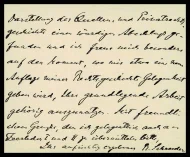 Darstellung des Quellen- und
geschichte einen würdigen Abschluß ge-
funden und ich freue mich besonders,
auf der Kunst, wo mir etwa ein
Auflage meiner Rechtsgeschichte Gelegenheit
geben wird, Ihre grundlegende Arbeit
gehörig auszunutzen. Mit freundl
ichen Grüßen, die ich gelegentlich auch an
zu übermitteln bitte
Ihr aufrichtig ergebener R. Schroeder